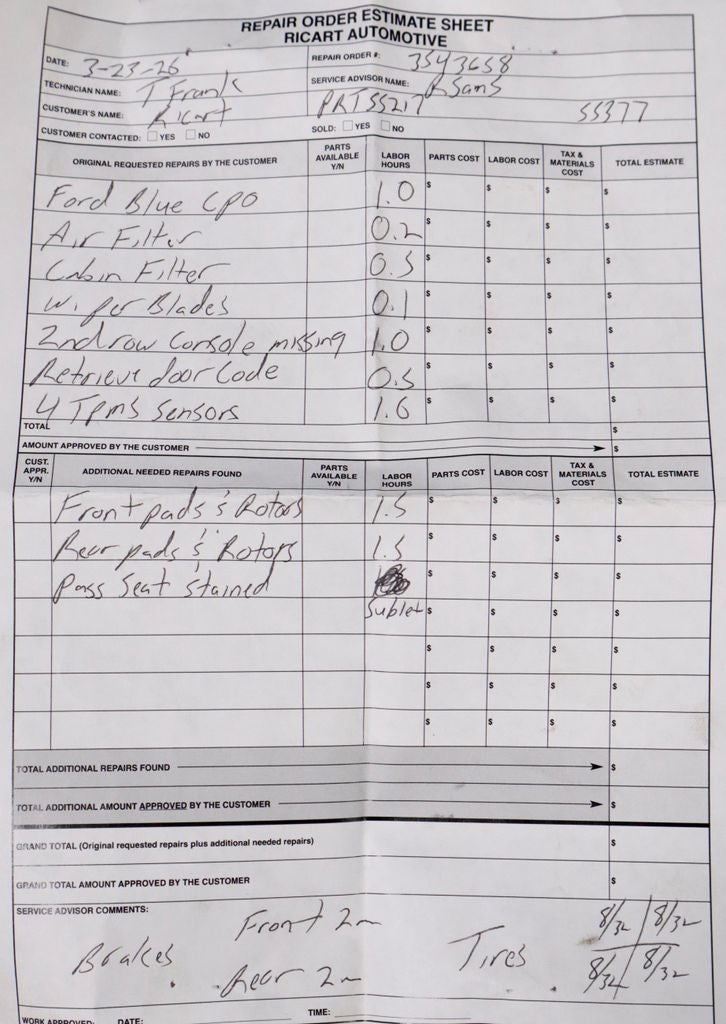 REPAIR ORDER ESTIMATE SHEET
RICART AUTOMOTIVE
DATE: 3-23-26 REPAIR ORDER #: 3543658
TECHNICIAN NAME: T Frank SERVICE ADVISOR NAME: RSams
CUSTOMER'S NAME: Ricart PRTSS217 SS377
CUSTOMER CONTACTED: YES NO SOLD: YES NO
ORIGINAL REQUESTED REPAIRS BY THE CUSTOMER PARTS AVAILABLE Y/N LABOR HOURS PARTS COST LABOR COST TAX & MATERIALS COST TOTAL ESTIMATE
Ford Blue CPO 1.0 $ $ $ $
Air Filter 0.2 $ $ $ $
Cabin Filter 0.5 $ $ $ $
Wiper Blades 0.1 $ $ $ $
2nd row Console missing 1.0 $ $ $ $
Retrieve door Code 0.5 $ $ $ $
4 TPMS Sensors 1.6 $ $ $ $
TOTAL $
AMOUNT APPROVED BY THE CUSTOMER $
CUST. APPR. Y/N ADDITIONAL NEEDED REPAIRS FOUND PARTS AVAILABLE Y/N LABOR HOURS PARTS COST LABOR COST TAX & MATERIALS COST TOTAL ESTIMATE
Front pads & Rotors 1.5 $ $ $ $
Rear pads & Rotors 1.5 $ $ $ $
Pass Seat stained $ $ $ $
Sublet $ $ $ $
$ $ $ $
$ $ $ $
$ $ $ $
TOTAL ADDITIONAL REPAIRS FOUND $
TOTAL ADDITIONAL AMOUNT APPROVED BY THE CUSTOMER $
GRAND TOTAL (Original requested repairs plus additional needed repairs) $
GRAND TOTAL AMOUNT APPROVED BY THE CUSTOMER $
SERVICE ADVISOR COMMENTS:
Front 2m 8/32 8/32
Brakes Tires
Rear 2m 8/32 8/32
WORK APPROVED: DATE: TIME: